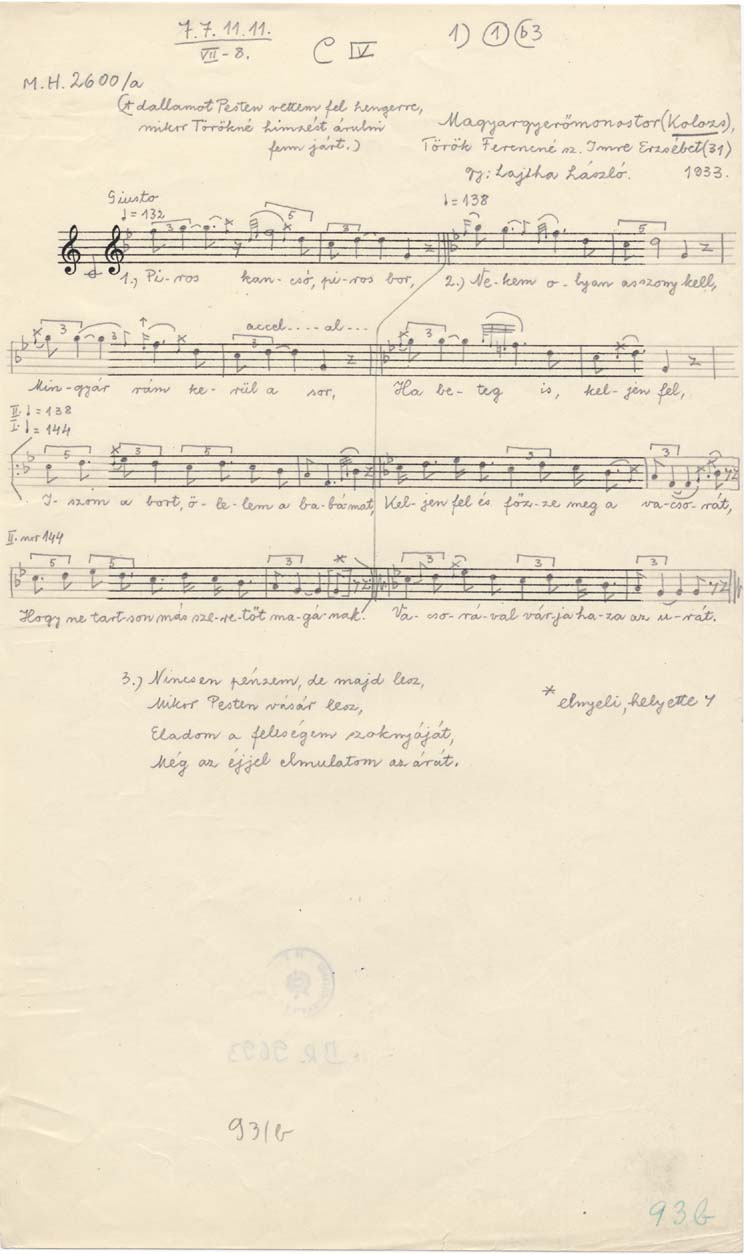 7. 7. 11. 11.
VII - 8.
C IV
1) 1 b3
M.H. 2600/a
(A dallamot Pesten vettem fel hengerre,
mikor Törökné hímzést árulni
fenn járt.)
Magyargyerőmonostor (Kolozs),
Török Ferencné sz. Imre Erzsébet (31)
gy: Lajtha László. 1933.
Giusto
♩ = 132
♩ = 138
3 5 3 5
1.) Pi-ros kan-csó, pi-ros bor,
2.) Ne-kem o-lyan asszony kell,
3 3 accel....al... 3 3
Min-gyár rám ke-rül a sor,
Ha be-teg is, kel-jen fel,
II. ♩ = 138
I. ♩ = 144
5 3 5 3 3
I-szom a bort, ö-le-lem a ba-bámat,
Kel-jen fel és főz-ze meg a va-cso-rát,
II. mer 144
5 5 3 * 3 3 3
Hogy ne tart-son más sze-re-tőt ma-gá-nak.
Va-cso-rá-val vár-ja ha-za az u-rát.
3.) Nincsen pénzem, de majd lesz,
Mikor Pesten vásár lesz,
Eladom a feleségem szoknyáját,
Még az éjjel elmulatom az árát.
* elnyeli, helyette 𝄾
93/b
93b